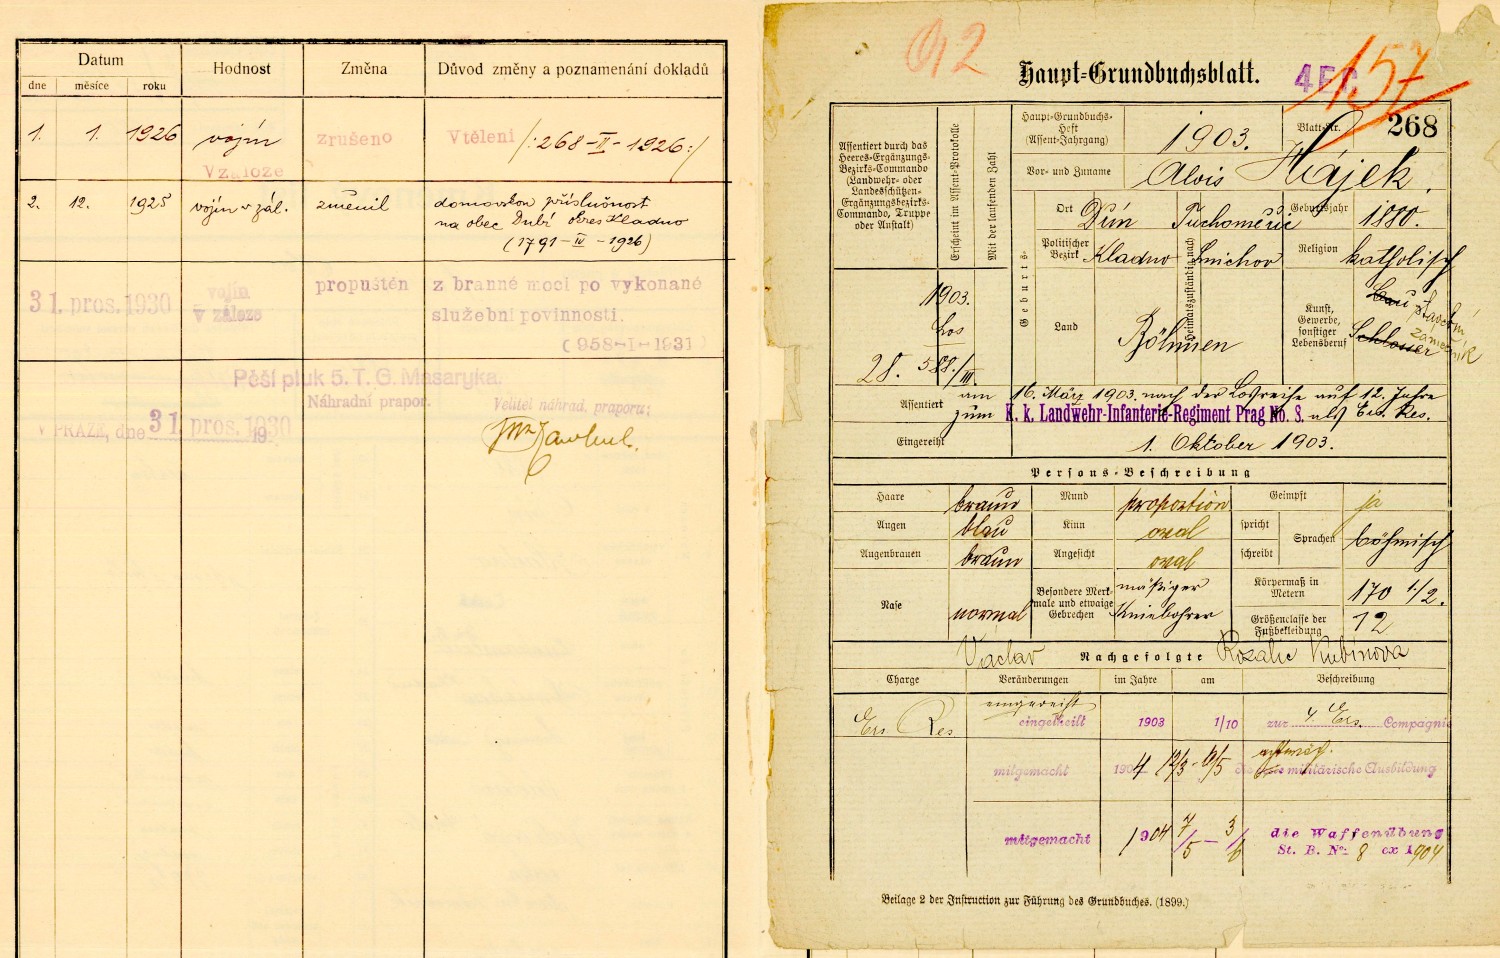 Datum
Hodnost
Změna
Důvod změny a poznamenání dokladů
dne měsíce roku
1. 1. 1926 vojín zrušeno Vtělení /:268-II-1926:/
V záloze
2. 12. 1925 vojín v zál. změnil domovskou příslušnost
na obec Dubí okres Kladno
(1791-IV-1926)
31. pros. 1930 vojín propuštěn z branné moci po vykonané
v záloze služební povinnosti.
(958-I-1931)
Pěší pluk 5. T. G. Masaryka.
Náhradní prapor. Velitel náhrad. praporu:
V PRAZE, dne 31. pros. 1930
19
92
Haupt-Grundbuchsblatt.
4 E C
157
Assentiert durch das
Heeres-Ergänzungs-
Bezirks-Commando
(Landwehr- oder
Landesschützen-
Ergänzungsbezirks-
Commando, Truppe
oder Anstalt)
Erscheint im Assent-Protokolle
Mit der laufenden Zahl
Haupt-Grundbuchs-
Heft
(Assent-Jahrgang)
1903.
Blatt-Nr.
268
Vor- und Zuname
Alois Hájek.
Geburts-
Ort
Politischer
Bezirk Kladno
Land
Böhmen
Heimatszuständig nach
Tuchoměřic
Smichov
Geburtsjahr 1880.
Religion katholisch
Kunst,
Gewerbe,
sonstiger
Lebensberuf
Schlosser
zámečník
1903.
Los
28. 588./III.
Assentiert
am 16. März 1903. nach der Losreihe auf 12 Jahre
zum K. k. Landwehr-Infanterie-Regiment Prag No. 8. als Ers. Res.
Eingereiht
1. Oktober 1903.
Persons-Beschreibung
Haare braun
Mund proportion
Geimpft ja
Augen blau
Kinn oval
spricht
schreibt
Sprachen
böhmisch
Augenbrauen braun
Angesicht oval
Nase normal
Besondere Merk-
male und etwaige
Gebrechen
mäßiger
Kniebohrer
Körpermaß in
Metern
170 1/2.
Größenclasse der
Fußbekleidung
12
Václav Nachgefolgte Rozalie Kubínova
Charge Veränderungen im Jahre am Beschreibung
eingereiht
Ers Res eingetheilt 1903 1/10 zur 4 Ers. Compagnie
mitgemacht 1904 12/3 - 6/5 die militärische Ausbildung
mitgemacht 1904 7/5 - 3/6 die Waffenübung
St. B. No 8 ex 1904
Beilage 2 der Instruction zur Führung des Grundbuches. (1899.)